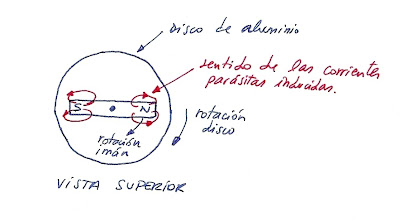 Disco de aluminio
sentido de las corrientes
parásitas inducidas.
S
N
rotación
imán
rotación
disco
VISTA SUPERIOR